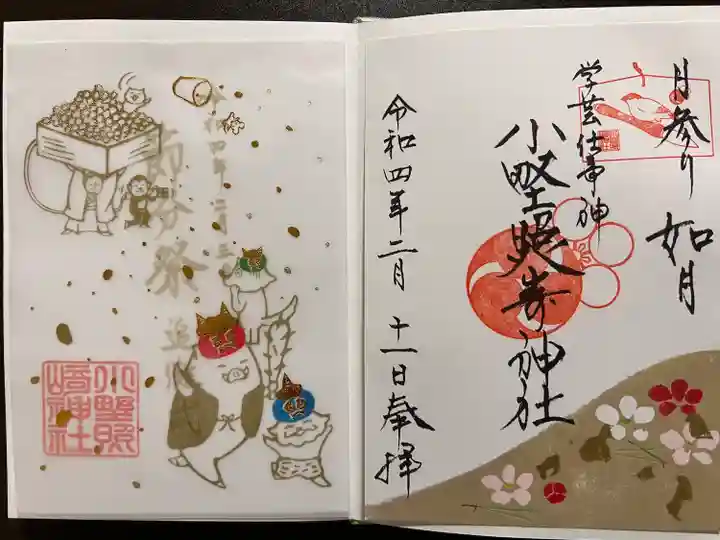 月参り 如月
学芸仕事神
小埜照崎神社
令和四年二月十一日奉拝
令和四年二月三日
節分祭
追儺式
小野照
崎神社